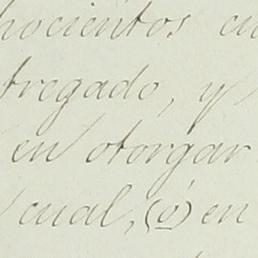 hocientos cu
tregado, y
en otorgar
cual, (ó) en